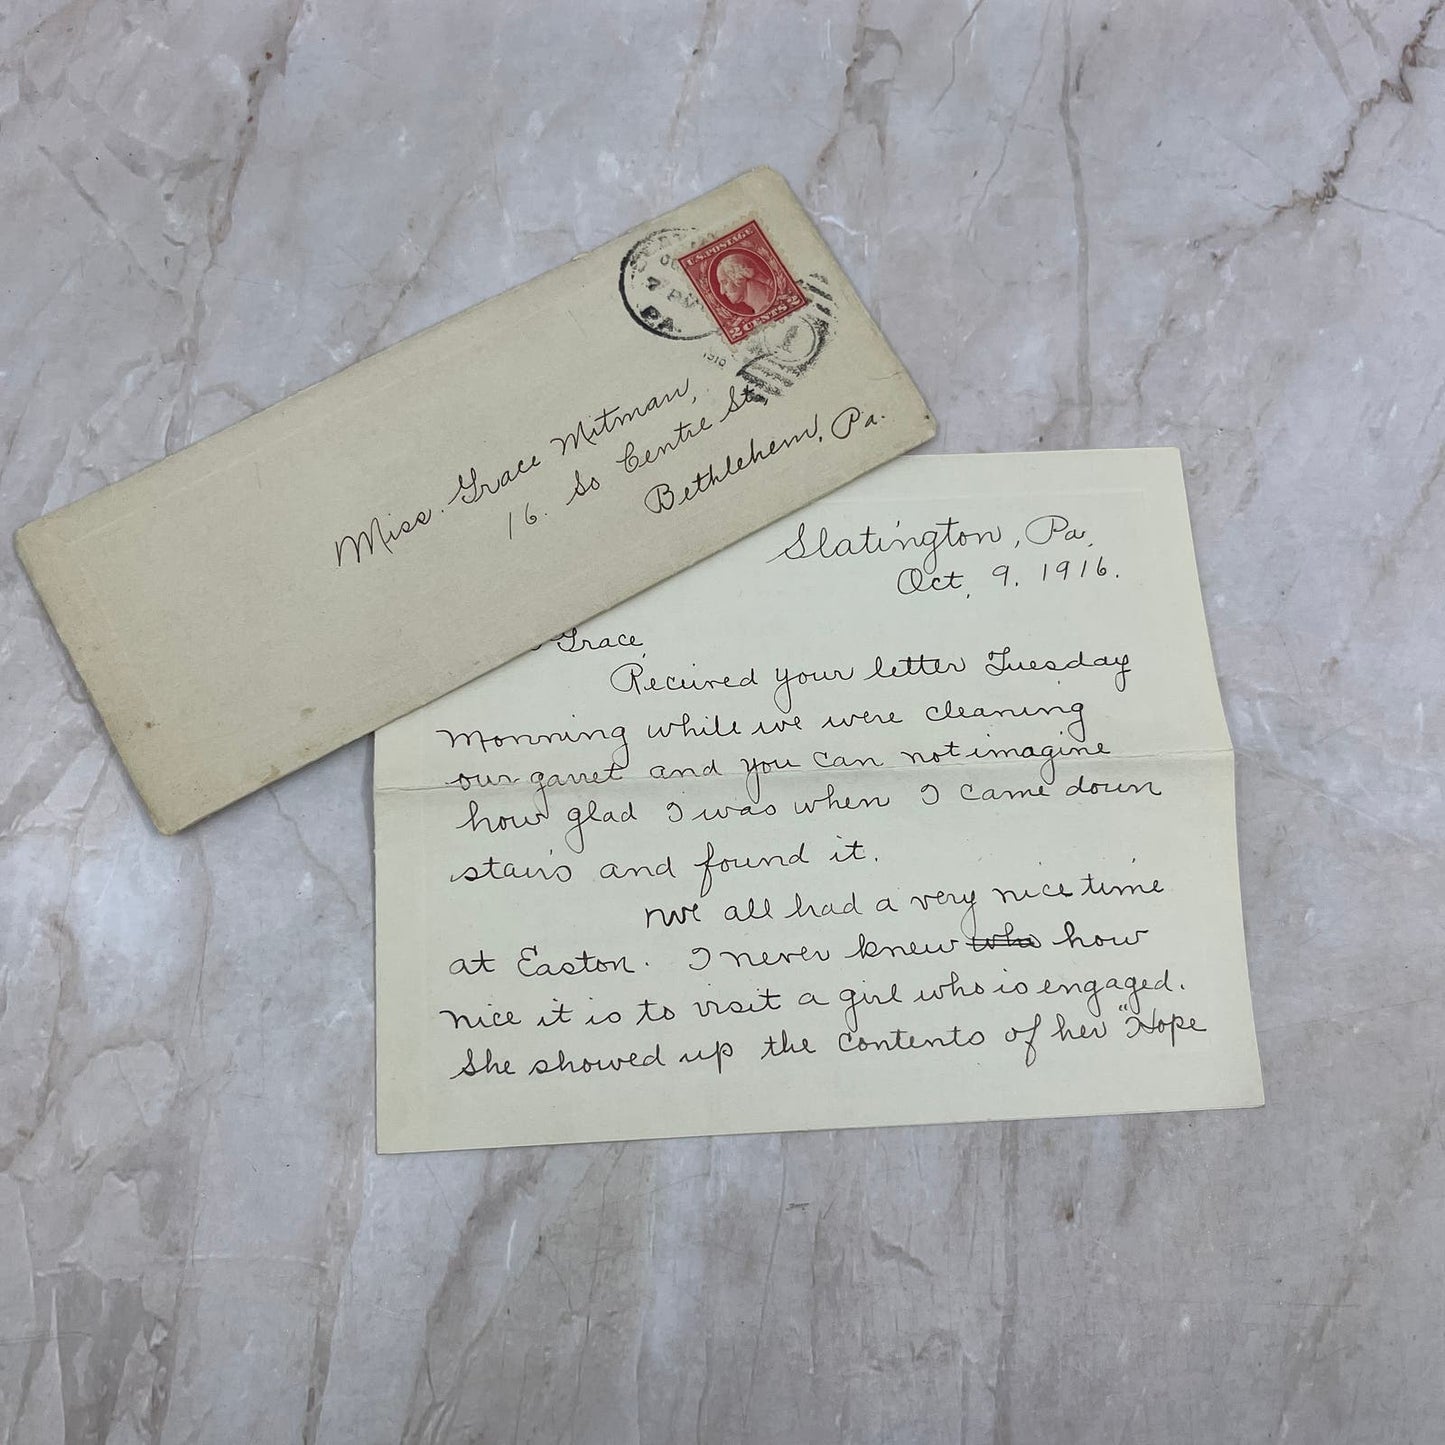 PA.
7 PM
1916
U.S. POSTAGE
2 CENTS 2
1
Miss. Grace Mitman,
16. So Centre St,
Bethlehem, Pa.
Slatington, Pa.
Oct, 9. 1916.
Grace,
Received your letter Tuesday
Morning while we were cleaning
our garret and you can not imagine
how glad I was when I came down
stairs and found it.
We all had a very nice time
at Easton. I never knew who how
nice it is to visit a girl who is engaged.
She showed up the contents of her "Hope